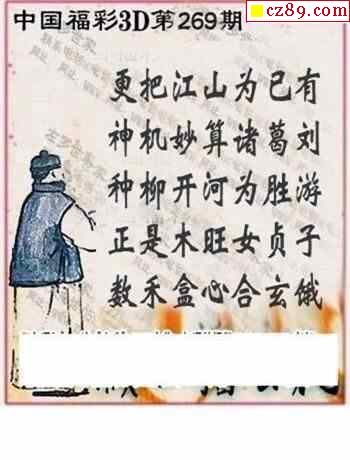 cz89.com
中国福彩3D第269期
更把江山为己有
神机妙算诸葛刘
种柳开河为胜游
正是木旺女贞子
数禾盒心合玄饿